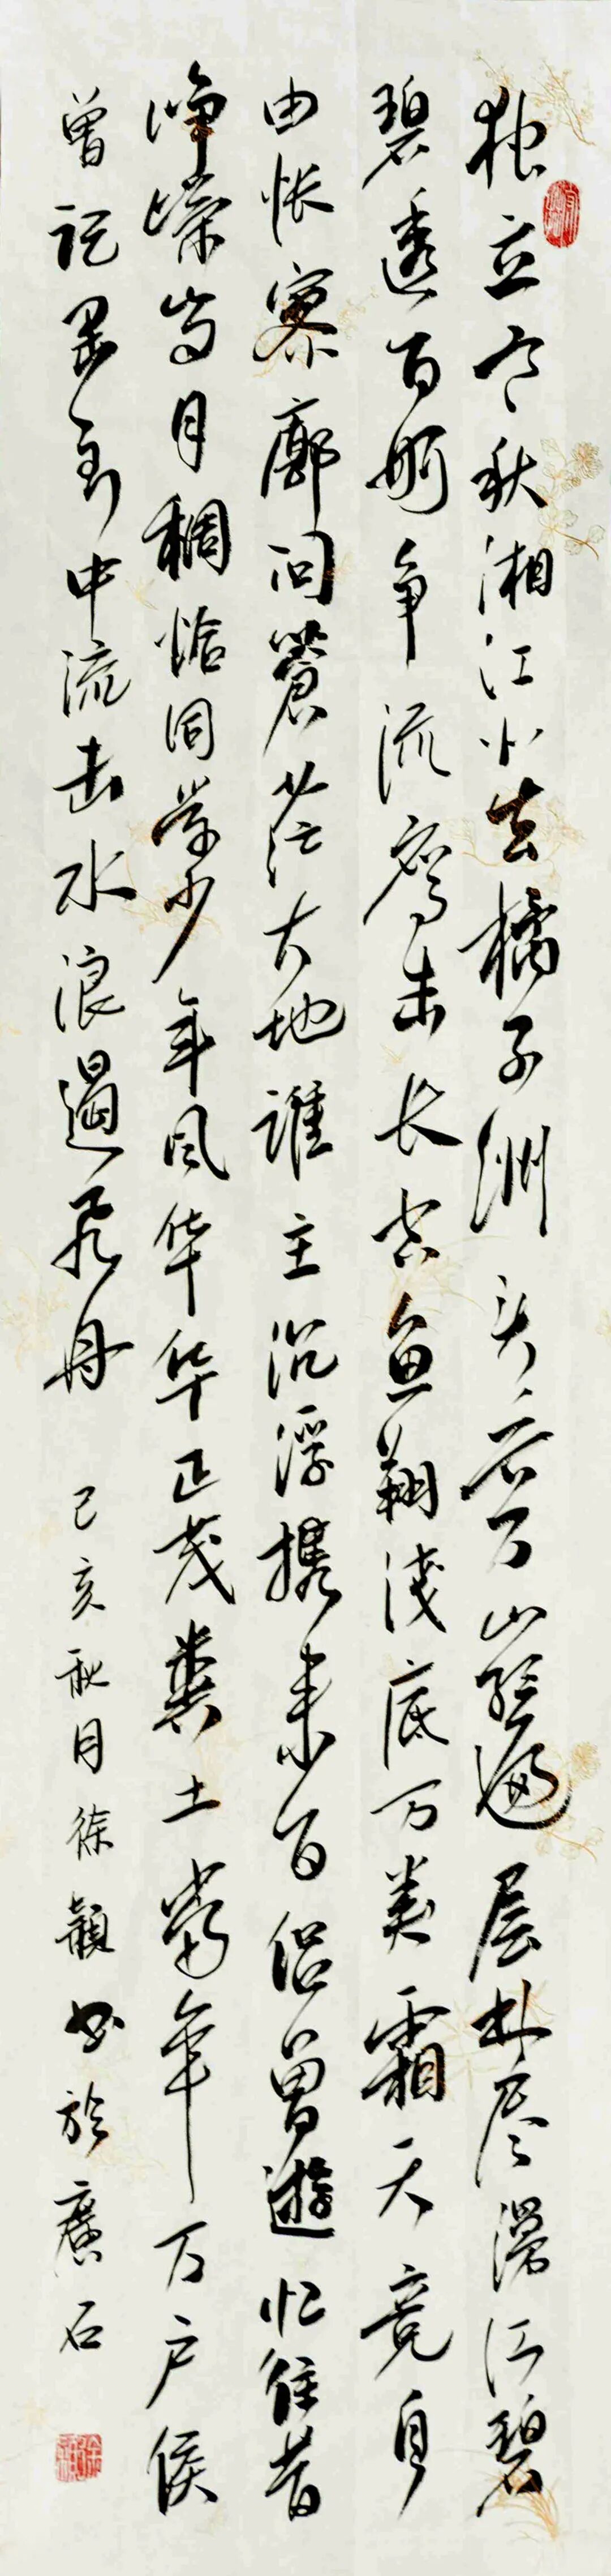 独立寒秋湘江北去橘子洲头看万山红遍层林尽漫江碧
碧透百舸争流鹰击长空鱼翔浅底万类霜天竞自
由怅寥廓问蒼茫大地谁主沉浮携来百侣曾遊忆往昔
峥嵘岁月稠恰同学少年风华华正茂粪土当年万户侯
曾记否到中流击水浪遏飞舟 己亥秋月徐颖书於廣石